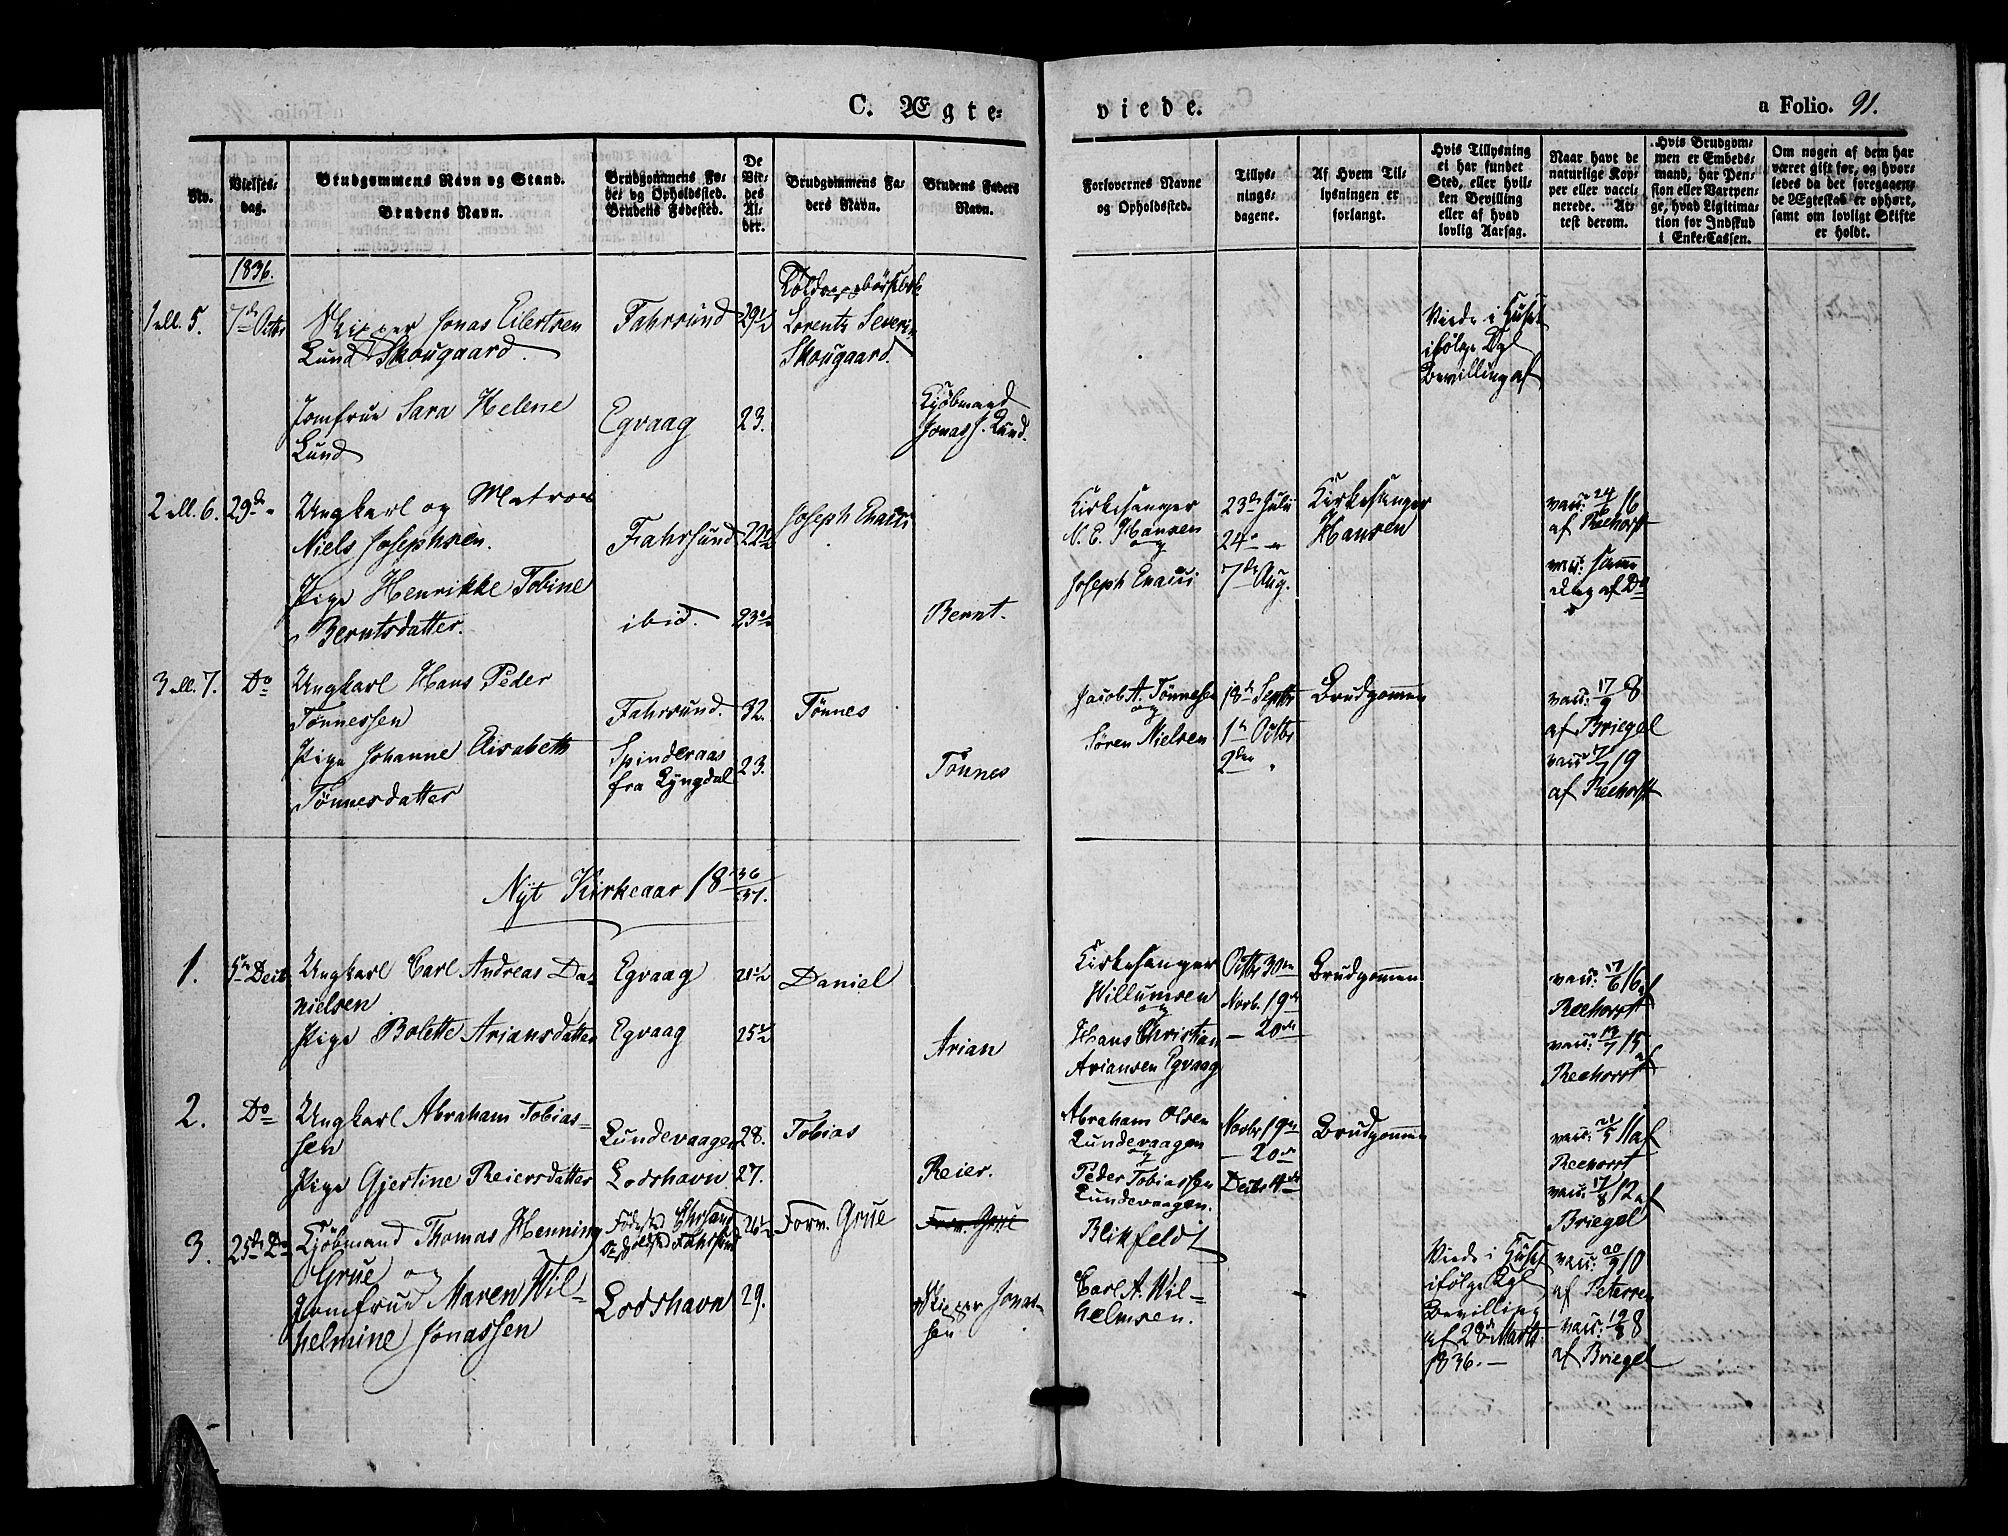 C. Ægte-
viede.
a Folio. 91.
No.
Vielses-
dag.
Brudgommens Navn og Stand.
Brudens Navn.
Brudgommens Fø-
de og Opholdssted.
Brudens Fødested.
De
Vie-
des
Al-
der.
Brudgommens Fa-
ders Navn.
Brudens Faders
Navn.
Forlovernes Navne
og Opholdssted.
Tillys-
nings-
dagene.
Af Hvem Til-
lysningen er
forlangt.
Hvis Tillysning
ei har fundet
Sted, eller hvil-
ken Bevilling
eller af hvad
lovlig Aarsag.
Naar havt de
naturlige Kop-
per eller vacci-
nerede. At-
test derom.
Hvis Brudgom-
men er Embeds-
mand, har Pen-
sion eller Vartpen-
ge, hvad Ligitima-
tion for Indskud
i Enke-Cassen.
Om nogen af dem har
været gift før, og hvor-
ledes da det foregaaen-
de Ægteskab er ophørt,
samt om lovligt Skifte
er holdt.
1836.
1 ell. 5.
7de Octbr
Skipper Jonas Eilertsen
Lund Skougaard.
Fahrsund
29 1/2
Lorentz Severin
Skougaard.
Viede i Huset
ifølge Kgl
Bevilling af
Jomfrue Sara Helene
Lund
Egvaag
23.
Kjøbmand
Jonas J. Lund.
2 ell. 6.
29de "
Ungkarl og Matros
Niels Josephsen.
Fahrsund
Joseph
Kirkesanger
N. E. Hansen
og
Joseph
23de Julii
24 "
7de Aug.
Kirkesanger
Hansen
vac: 24/6 16
af Reehorst
vac: samme
dag af Do
Pige Henrikke Tobine
Berntsdatter.
ibid.
Bernt.
3 ell. 7.
Do
Ungkarl Hans Peder
Tønnessen
Fahrsund.
32.
Tønnes
Jacob A. Tønnesen
og
Søren Nielsen
18de Septbr
1te Octbr
2den "
Brudgommen
vac: 17/9 8
af Briegel
vac: 7/7 9
af Reehorst
Pige Johanne Elisabeth
Tønnesdatter
Spinderaas
fra Lyngdal
23.
Tønnes
Nyt Kirkeaar 18 36/37.
1.
5te Decb
Ungkarl Carl Andreas Da-
nielsen
Egvaag
Daniel
Kirkesanger
Willumsen
og
Hans Christian
Ariansen Egvaag
Octbr 30te
Novb. 19de
— 20de
Brudgommen
vac: 17/6 16 af
Reehorst
vac: 13/7 15 af
Reehorst
Pige Bolette Ariansdatter
Egvaag
Arian
2.
Do
Ungkarl Abraham Tobias-
sen
Lundevaagen
28.
Tobias
Abraham Olsen
Lundevaagen
og
Peder Tobiassen
Lundevaagen.
Novbr 19de
— 20de
Decbr 4de
Brudgommen
vac: 21/5 11 af
Reehorst
vac: 17/8 12 af
Briegel
Pige Gjertine Reiersdatter
Lodshavn
27.
Reier.
3.
25de Do
Kjøbmand Thomas Henning
Grue og
Fødested Chrsand
Opholdsted Fahrsund
26 1/2
Forv. Grue
Forv. Grue
Blikfeldt
Carl A. Wil-
helmsen.
Viede i Huset
ifølge Kgl
Bevilling
af 28de Marts
1836. —
vac: 20/9 10
af Petersen
vac: 12/8 8
af Briegel
Jomfrue Maren Wil-
helmine Jonassen
Lodshavn
29.
Skipper Jonas-
sen